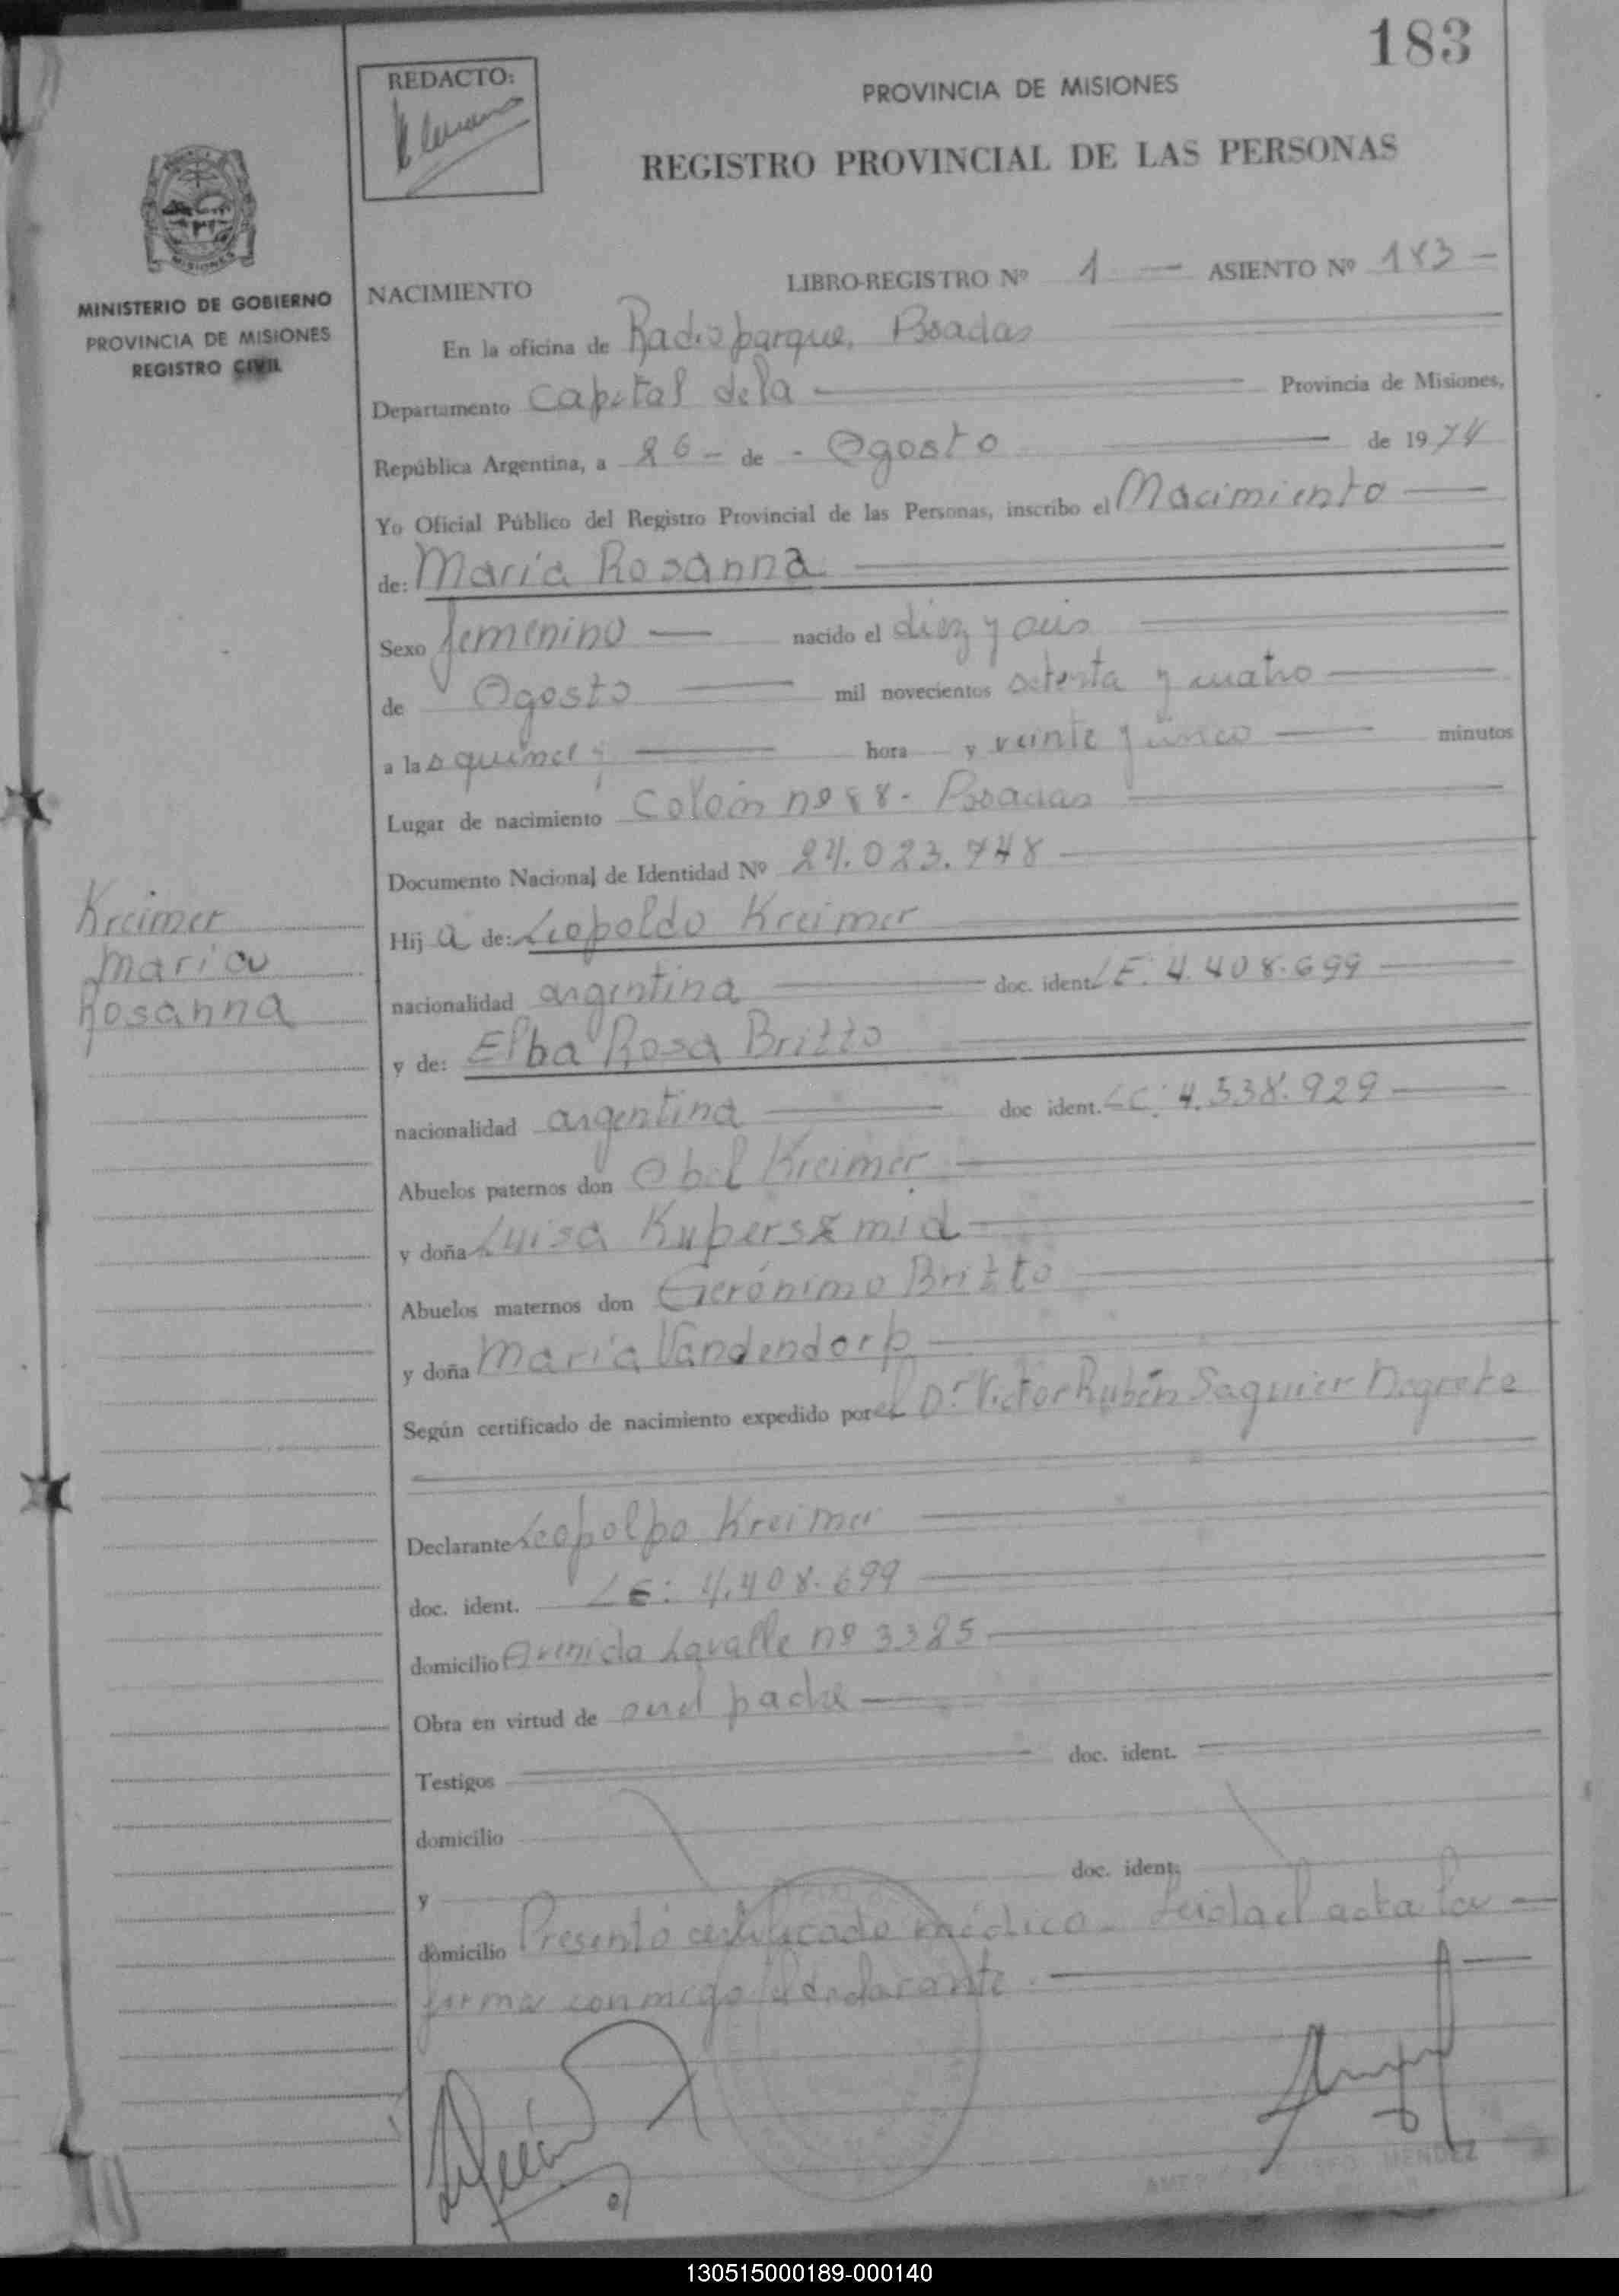 183
REDACTO:
PROVINCIA DE MISIONES
REGISTRO PROVINCIAL DE LAS PERSONAS
MISIONES
MINISTERIO DE GOBIERNO
PROVINCIA DE MISIONES
REGISTRO CIVIL
NACIMIENTO LIBRO-REGISTRO Nº 1 — ASIENTO Nº 183 —
En la oficina de Radioparque, Posadas
Departamento Capital de la Provincia de Misiones,
República Argentina, a 26 - de - Agosto de 1974
Yo Oficial Público del Registro Provincial de las Personas, inscribo el Nacimiento
de: María Rosanna
Sexo femenino — nacido el diez y seis
de Agosto mil novecientos setenta y cuatro
a las quince y hora y veinte y cinco minutos
Lugar de nacimiento Colón nº 88 - Posadas
Documento Nacional de Identidad Nº 24.023.748
Kreimer
María
Rosanna
Hij a de: Leopoldo Kreimer
nacionalidad argentina doc. ident. LE: 4.408.699
y de: Elba Rosa Britto
nacionalidad argentina doc ident. LC: 4.538.929
Abuelos paternos don Abel Kreimer
y doña Luisa Kuperszmid
Abuelos maternos don Gerónimo Britto
y doña María Vandendorp
Según certificado de nacimiento expedido por el Dr Victor Rubén Saguier Negrete
Declarante Leopolpo Kreimer
doc. ident. LE: 4.408.699
domicilio Avenida Lavalle nº 3385
Obra en virtud de ser el padre
Testigos doc. ident.
domicilio
y doc. ident.
domicilio Presentó certificado médico. Leida el acta la
firma conmigo el declarante.
MENDEZ
130515000189-000140